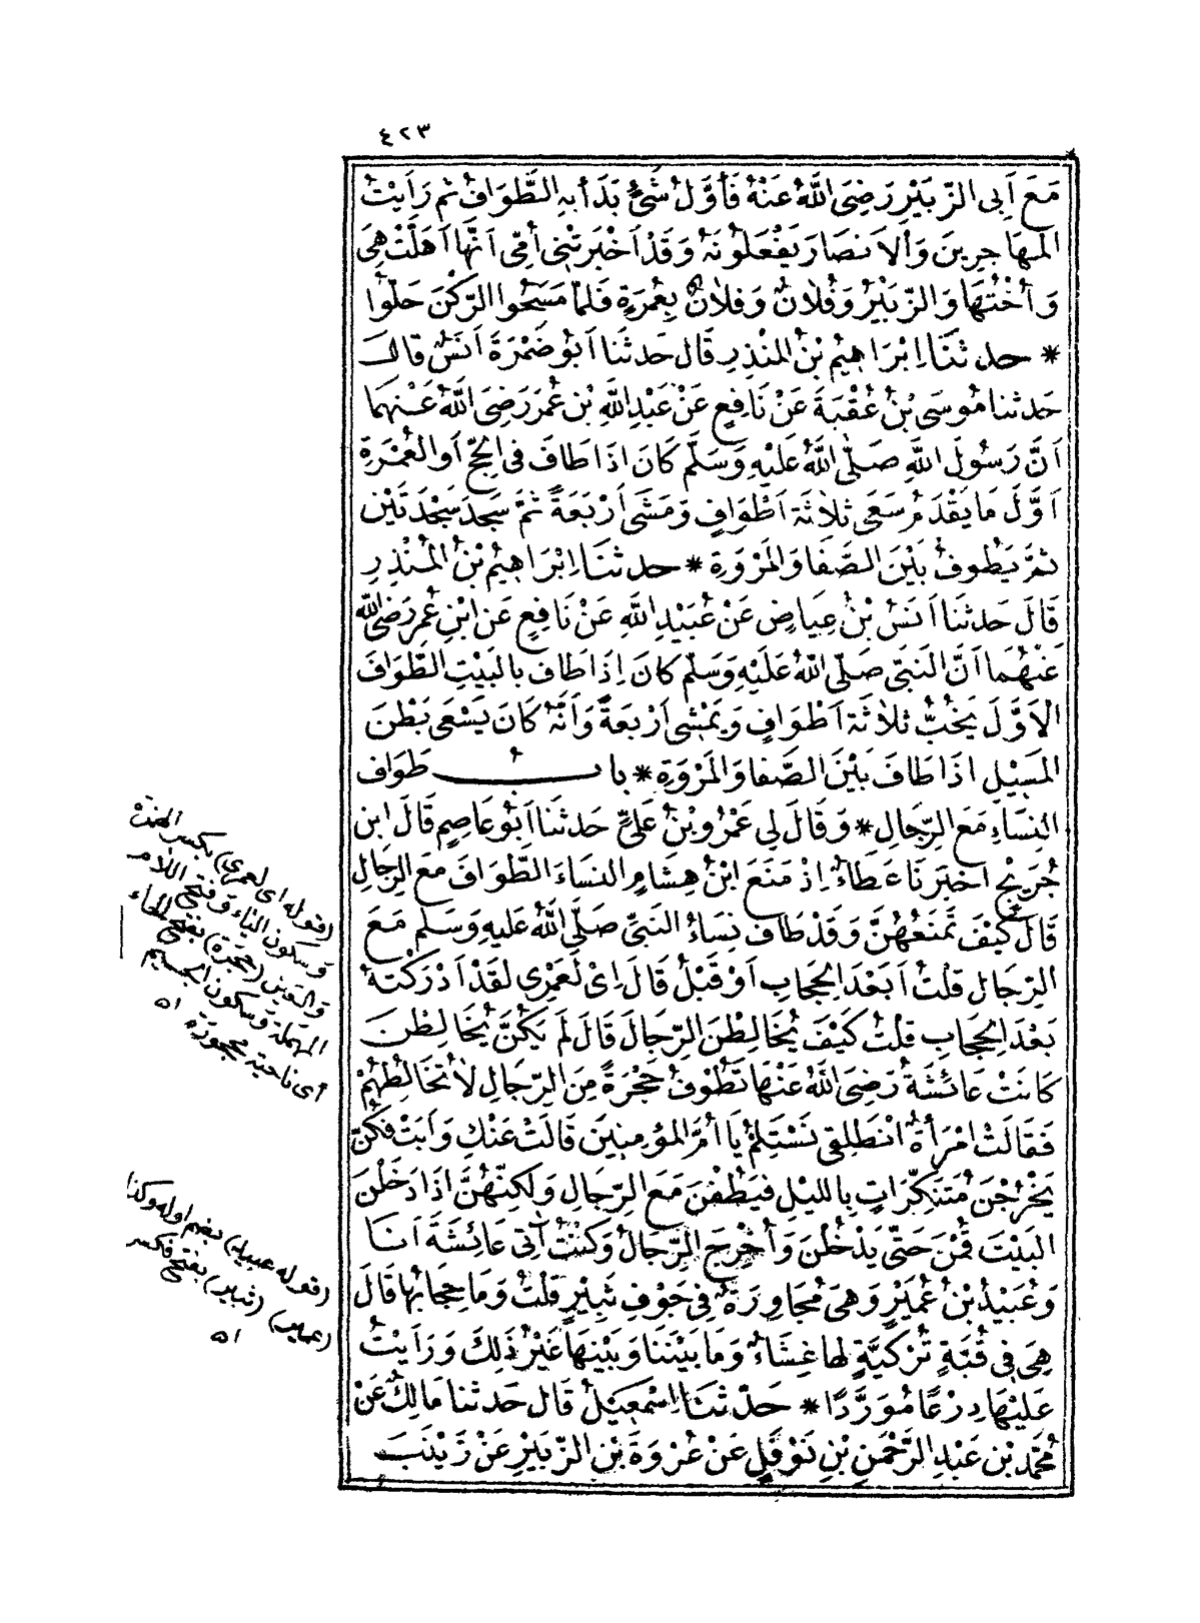 ٤٢٣
مَعَ أَبِي الزُّبَيْرِ رَضِيَ اللَّهُ عَنْهُ فَأَوَّلُ شَيْءٍ بَدَأَ بِهِ الطَّوَافُ ثُمَّ رَأَيْتُ
الْمُهَاجِرِينَ وَالْأَنْصَارَ يَفْعَلُونَهُ وَقَدْ أَخْبَرَتْنِي أُمِّي أَنَّهَا أَهَلَّتْ هِيَ
وَأُخْتُهَا وَالزُّبَيْرُ وَفُلَانٌ وَفُلَانٌ بِعُمْرَةٍ فَلَمَّا مَسَحُوا الرُّكْنَ حَلُّوا
* حدثنا إِبْرَاهِيمُ بْنُ الْمُنْذِرِ قَالَ حَدثَنا أَبُو ضَمْرَةَ أَنَسٌ قَالَ
حَدثنا مُوسَى بْنُ عُقْبَةَ عَنْ نَافِعٍ عَنْ عَبْدِ اللَّهِ بْنِ عُمَرَ رَضِيَ اللَّهُ عَنْهُمَا
أَنَّ رَسُولَ اللَّهِ صَلَّى اللَّهُ عَلَيْهِ وَسَلَّمَ كَانَ إِذَا طَافَ فِي الْحَجِّ أَوِ الْعُمْرَةِ
أَوَّلَ مَا يَقْدَمُ سَعَى ثَلَاثَةَ أَطْوَافٍ وَمَشَى أَرْبَعَةً ثُمَّ سَجَدَ سَجْدَتَيْنِ
ثُمَّ يَطُوفُ بَيْنَ الصَّفَا وَالْمَرْوَةِ * حدثنا إِبْرَاهِيمُ بْنُ الْمُنْذِرِ
قَالَ حَدثَنا أَنَسُ بْنُ عِيَاضٍ عَنْ عُبَيْدِ اللَّهِ عَنْ نَافِعٍ عَنِ ابْنِ عُمَرَ رَضِيَ اللَّهُ
عَنْهُمَا أَنَّ النَّبِيَّ صَلَّى اللَّهُ عَلَيْهِ وَسَلَّمَ كَانَ إِذَا طَافَ بِالْبَيْتِ الطَّوَافَ
الْأَوَّلَ يَخُبُّ ثَلَاثَةَ أَطْوَافٍ وَيَمْشِي أَرْبَعَةً وَأَنَّهُ كَانَ يَسْعَى بَطْنَ
الْمَسِيلِ إِذَا طَافَ بَيْنَ الصَّفَا وَالْمَرْوَةِ * بابُ طَوَافِ
النِّسَاءِ مَعَ الرِّجَالِ * وَقَالَ لِي عَمْرُو بْنُ عَلِيٍّ حَدثَنَا أَبُو عَاصِمٍ قَالَ ابْنُ
جُرَيْجٍ أَخْبَرَنَا عَطَاءٌ إِذْ مَنَعَ ابْنُ هِشَامٍ النِّسَاءَ الطَّوَافَ مَعَ الرِّجَالِ
قَالَ كَيْفَ تَمْنَعُهُنَّ وَقَدْ طَافَ نِسَاءُ النَّبِيِّ صَلَّى اللَّهُ عَلَيْهِ وَسَلَّمَ مَعَ
الرِّجَالِ قُلْتُ أَبَعْدَ الْحِجَابِ أَوْ قَبْلُ قَالَ إِي لَعَمْرِي لَقَدْ أَدْرَكْتُهُ
بَعْدَ الْحِجَابِ قُلْتُ كَيْفَ يُخَالِطْنَ الرِّجَالَ قَالَ لَمْ يَكُنَّ يُخَالِطْنَ
كَانَتْ عَائِشَةُ رَضِيَ اللَّهُ عَنْهَا تَطُوفُ حَجْرَةً مِنَ الرِّجَالِ لَا تُخَالِطُهُمْ
فَقَالَتْ امْرَأَةٌ انْطَلِقِي نَسْتَلِمْ يَا أُمَّ الْمُؤْمِنِينَ قَالَتْ عَنْكِ وَأَبَتْ فَكُنَّ
يَخْرُجْنَ مُتَنَكِّرَاتٍ بِاللَّيْلِ فَيَطُفْنَ مَعَ الرِّجَالِ وَلَكِنَّهُنَّ إِذَا دَخَلْنَ
الْبَيْتَ قُمْنَ حَتَّى يَدْخُلْنَ وَأُخْرِجَ الرِّجَالُ وَكُنْتُ آتِي عَائِشَةَ أَنَا
وَعُبَيْدُ بْنُ عُمَيْرٍ وَهِيَ مُجَاوِرَةٌ فِي جَوْفِ ثَبِيرٍ قُلْتُ وَمَا حِجَابُهَا قَالَ
هِيَ فِي قُبَّةٍ تُرْكِيَّةٍ لَهَا غِشَاءٌ وَمَا بَيْنَنَا وَبَيْنَهَا غَيْرُ ذَلِكَ وَرَأَيْتُ
عَلَيْهَا دِرْعًا مُوَرَّدًا * حَدّثَنَا إِسْمَعِيلُ قَالَ حَدثنا مَالِكٌ عَنْ
مُحَمَّدِ بْنِ عَبْدِ الرَّحْمَنِ بْنِ نَوْفَلٍ عَنْ عُرْوَةَ بْنِ الزُّبَيْرِ عَنْ زَيْنَبَ
(قوله اى لعمري) بكسر الهمزة
وسكون الياء وفتح اللام
والعين (حجرة) بفتح الحاء
المهملة وسكون الجيم
أى ناحية محجورة اه
(قوله عبيد) بضم اوله وكذا
(عمير) (ثبير) بفتح فكسر
اه